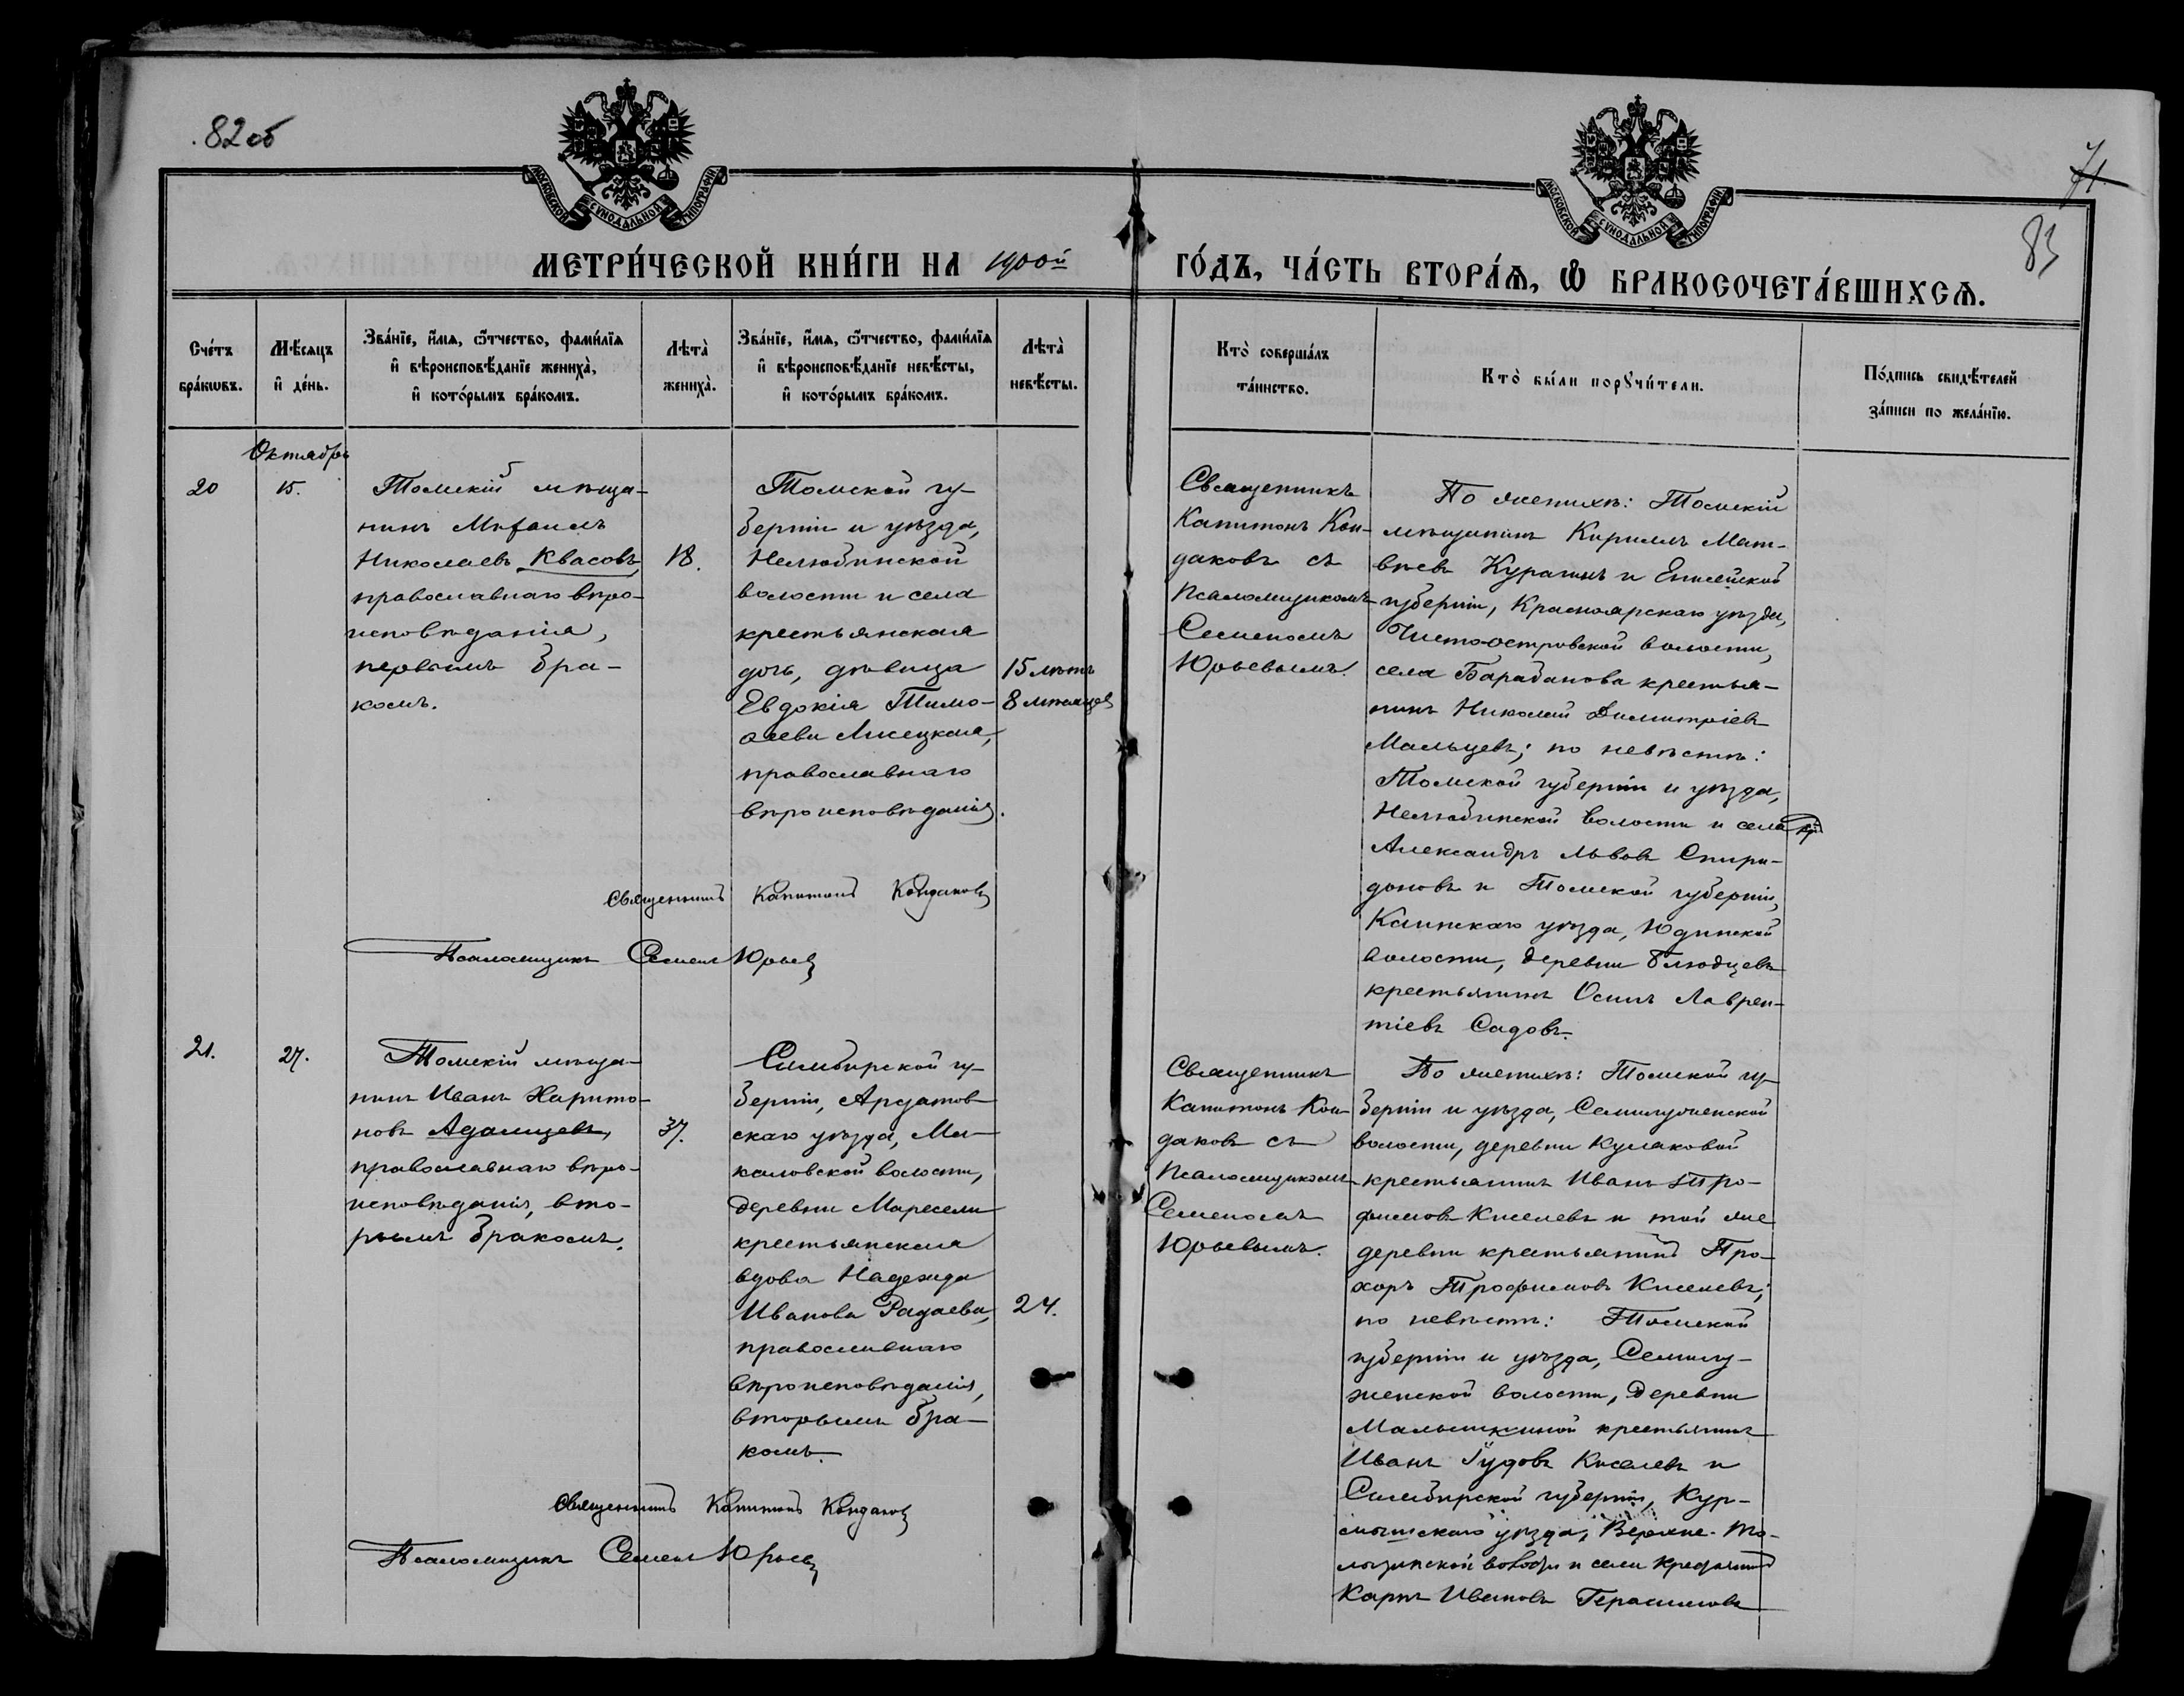 82 об
71.
83
МОСКОВСКОЙ СѴНОДАЛЬНОЙ ТИПОГРАФІИ
МОСКОВСКОЙ СѴНОДАЛЬНОЙ ТИПОГРАФІИ
МЕТРИ́ЧЕСКОЙ КНИ́ГИ НА 1900й ГО́ДЪ, ЧА́СТЬ ВТОРА́Ѧ, Ѽ БРАКОСОЧЕТА́ВШИХСѦ.
Сче́тъ бра́кѡвъ.
Мѣ́сѧцъ и҆ де́нь.
Зва́нїе, и҆́мѧ, ѻ҆́тчество, фами́лїѧ и҆ вѣроисповѣ́данїе жениха̀, и҆ кото́рымъ бра́комъ.
Лѣта̀ жениха̀.
Зва́нїе, и҆́мѧ, ѻ҆́тчество, фами́лїѧ и҆ вѣроисповѣ́данїе невѣ́сты, и҆ кото́рымъ бра́комъ.
Лѣта̀ невѣ́сты.
Кто̀ соверша́лъ та́инство.
Кто̀ бы́ли порꙋчи́тели.
По́дпись свидѣ́телей за́писи по жела́нїю.
Октябрь
20
15.
Томскій мѣща-
нинъ Михаилъ
Николаевъ Квасовъ,
православнаго вѣро-
исповѣданія,
первымъ бра-
комъ.
18.
Томской гу-
берніи и уѣзда,
Нелюбинской
волости и села
крестьянская
дочь, дѣвица
Евдокія Тимо-
ѳеева Лисецкая,
православнаго
вѣроисповѣданія.
15 лѣтъ
8 мѣсяцев
Священникъ
Капитонъ Кон-
даковъ съ
Псаломщикомъ
Семеномъ
Юрьевымъ.
По женихѣ: Томскій
мѣщанинъ Кириллъ Мат-
вѣевъ Курагинъ и Енисейской
губерніи, Красноярскаго уѣзда,
Чистоостровской волости,
села Барабанова крестья-
нинъ Николай Димитріевъ
Мальцевъ; по невѣстѣ:
Томской губерніи и уѣзда,
Нелюбинской волости и села кр.
Александръ Львовъ Спири-
доновъ и Томской губерніи,
Каинскаго уѣзда, Юдинской
волости, деревни Блюдцевъ
крестьянинъ Осипъ Лаврен-
тіевъ Садовъ.
Священникъ Капитонъ Кондаковъ
Псаломщикъ Семенъ Юрьевъ
21.
27.
Томскій мѣща-
нинъ Иванъ Харито-
новъ Адамцевъ,
православнаго вѣро-
исповѣданія, вто-
рымъ бракомъ.
37.
Симбирской гу-
берніи, Ардатов-
скаго уѣзда, Ма-
каловской волости,
деревни Маресели
крестьянская
вдова Надежда
Иванова Радаева,
православнаго
вѣроисповѣданія,
вторымъ бра-
комъ.
24.
Священникъ
Капитонъ Кон-
даковъ съ
Псаломщикомъ
Семеномъ
Юрьевымъ.
По женихѣ: Томской гу-
берніи и уѣзда, Семилуженской
волости, деревни Кулаковой
крестьянинъ Иванъ Тро-
фимовъ Киселевъ и той же
деревни крестьянинъ Про-
хоръ Трофимовъ Киселевъ;
по невѣстѣ: Томской
губерніи и уѣзда, Семилу-
женской волости, деревни
Малышкиной крестьянинъ
Иванъ Гудовъ Киселевъ и
Симбирской губерніи, Кур-
мышскаго уѣзда, Верхне-
волости и села крестьянинъ
Карпъ Ивановъ Герасимовъ
Священникъ Капитонъ Кондаковъ
Псаломщикъ Семенъ Юрьевъ